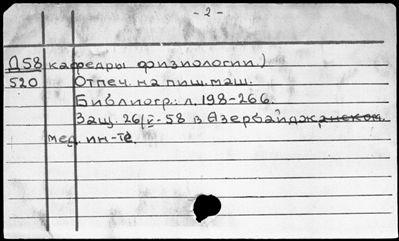 - 2 -
Д58 кафедры физиологии.)
520 Отпеч. на пиш. маш.
Библиогр.: л. 198-266.
Защ. 26/V-58 в Азербайджанском
мед. ин-те.